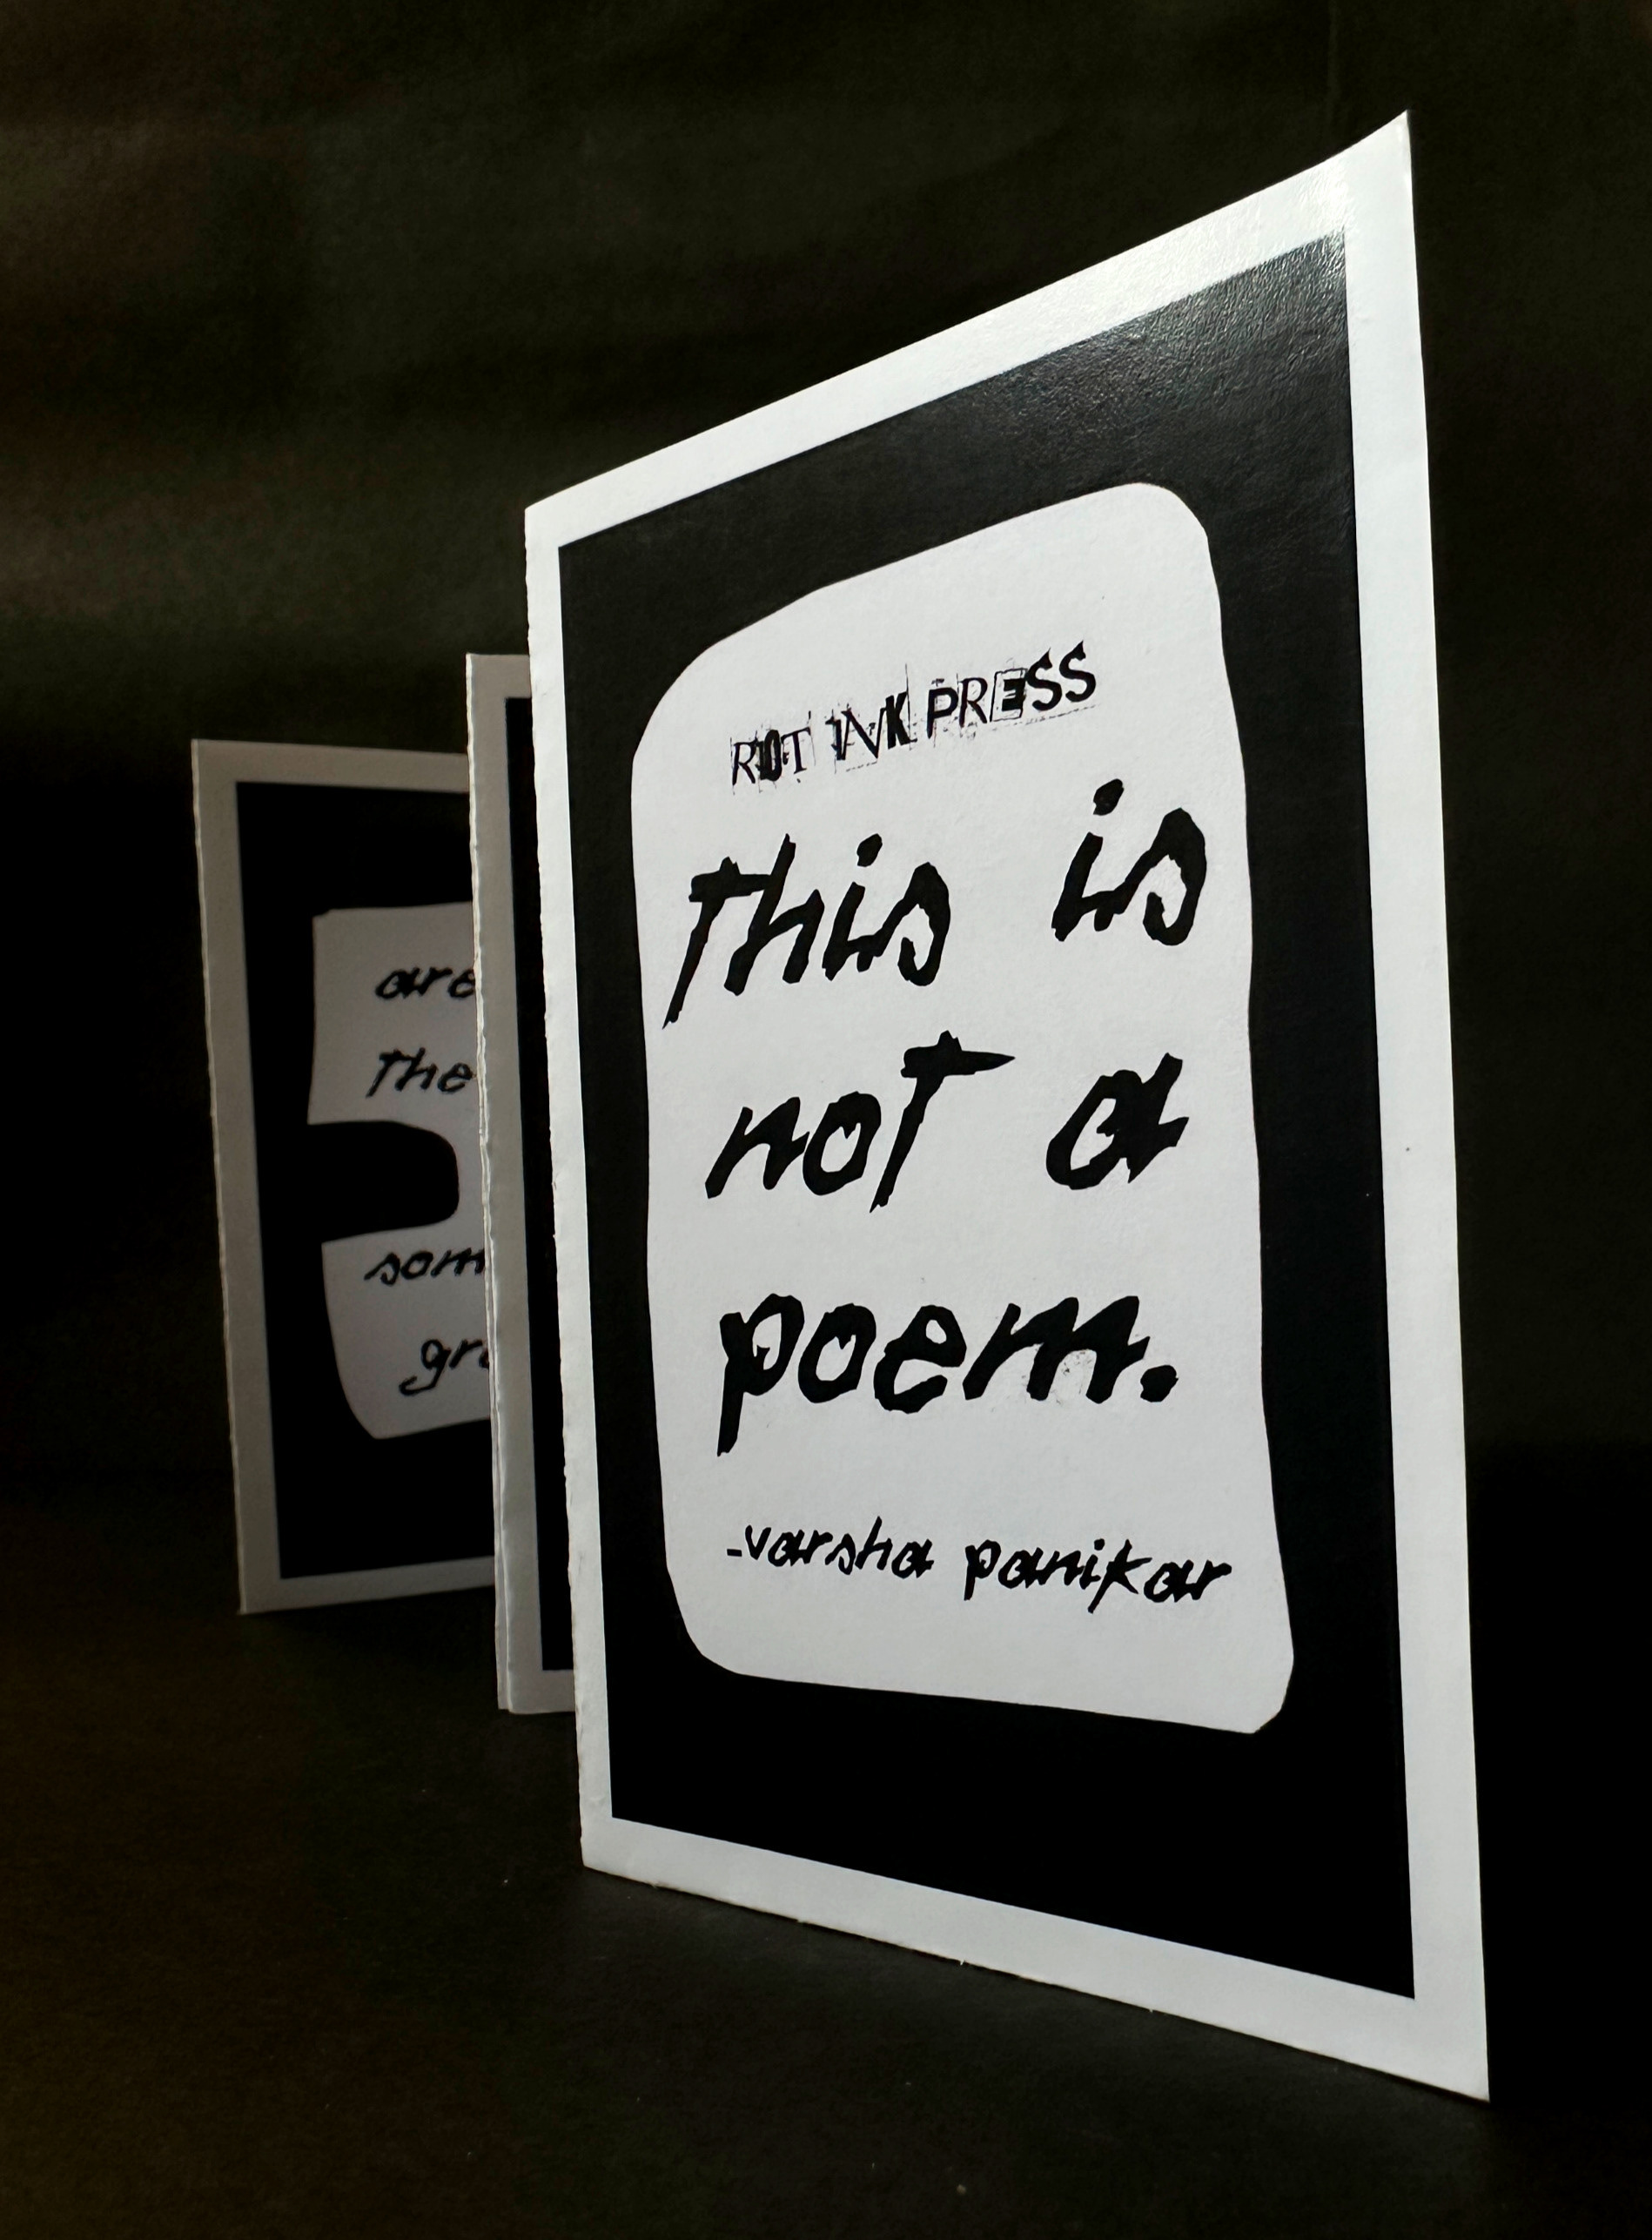 ROT INK PRESS
this is
not a
poem.
-varsha panikar
are
the
som
gr